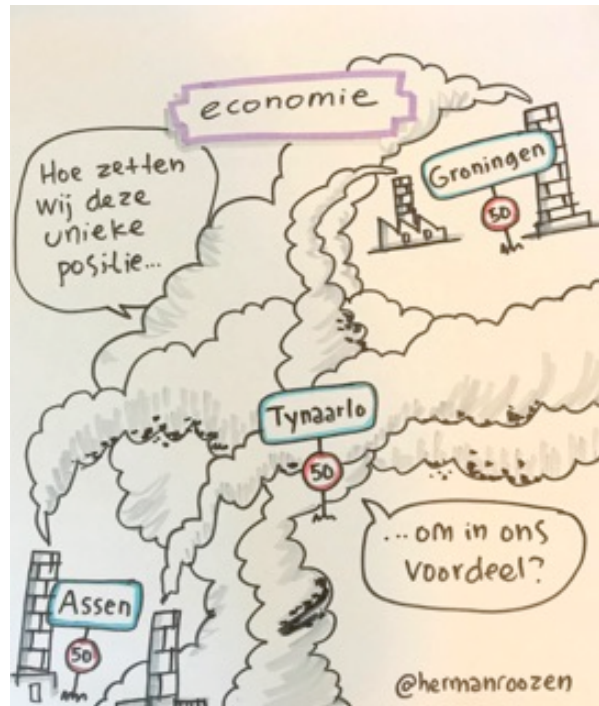 economie
Hoe zetten
wij deze
unieke
positie...
Groningen
50
Tynaarlo
50
...om in ons
voordeel?
Assen
50
@hermanroozen